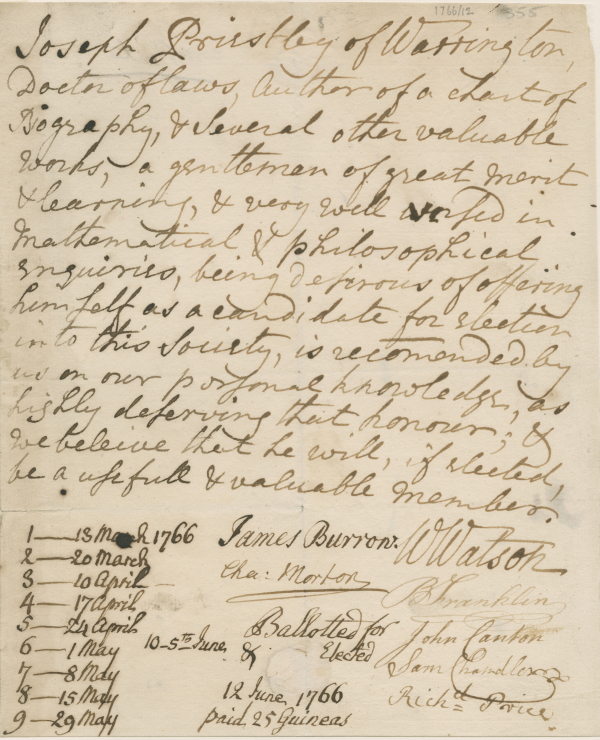 1766/12 355
Joseph Priestley of Warrington,
Doctor of laws, Author of a chart of
Biography, & several other valuable
works, a gentleman of great merit
& learning, & very well versed in
mathematical & philosophical
enquiries, being desirous of offering
himself as a candidate for election
into this Society, is recomended by
us on our personal knowledge, as
highly deserving that honour; &
we beleive that he will, if elected,
be a usefull & valuable member.
1—13 March 1766
2—20 March
3—10 April
4—17 April
5—24 April
6—1 May
7—8 May
8—15 May
9—29 May
10-5th June
James Burrow.
Cha: Morton
Ballotted for
& Elected
12 June 1766
paid 25 Guineas
W Watson
B Franklin
John Canton
Sam Chandler
Richd Price